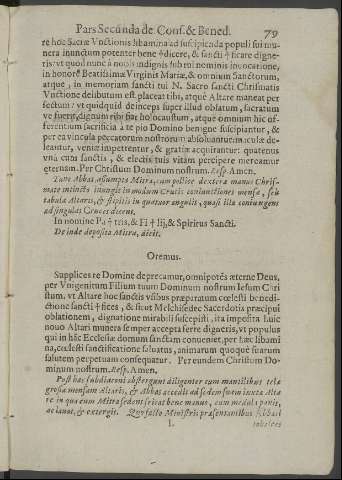 Pars Secunda de Cons. & Bened. 79
re hoc Sacræ Vnctionis libamina ad suscipienda populi sui mu-
nera inunctum potenter bene † dicere, & sancti † ficare digne-
ris: vt quod nunc à nobis indignis sub tui nominis inuocatione,
in honorē Beatissimæ Virginis Mariæ, & omnium Sanctorum,
atque, in memoriam sancti tui N. Sacro sancti Chrismatis
Vnctione delibutum est, placeat tibi, atquè Altare maneat per
fectum: vt quidquid deinceps super illud oblatum, sacratum
ve fuerit, dignum tibi fiat holocaustum, atquè omnium hic of-
ferentium sacrificia à te pio Domino benigne suscipiantur, &
per ea vincula peccatorum nostrorum absoluantur: maculæ de-
leantur, veniæ impetrentur, & gratiæ acquirantur: quatenus
vnà cum sanctis, & electis tuis vitam percipere mereamur
eternam. Per Christum Dominum nostrum. Resp. Amen.
Tunc Abbas assumpta Mitra, cum pollice dexteræ manus Chris-
mate intincto inungit in modum Crucis coniunctiones mensæ, seù
tabulæ Altaris, & stipitis in quatuor angulis, quasi illa coniungens
ad singulas Cruces dicens.
In nomine Pa † tris, & Fi † lij, & Spiritus Sancti.
Deinde deposita Mitra, dicit.
Oremus.
Supplices te Domine deprecamur, omnipotēs æterne Deus,
per Vnigenitum Filium tuum Dominum nostrum Iesum Chri
stum. vt Altare hoc sanctis vsibus præparatum cœlesti benedi-
ctione sancti † fices, & sicut Melchisedec Sacerdotis præcipui
oblationem, dignatione mirabili suscepisti, ita imposita huic
nouo Altari munera semper accepta ferre digneris, vt populus
qui in hāc Ecclesiæ domum sanctam conueniet, per hæc libami
na, cœlesti sanctificatione saluatus, animarum quoquè suarum
salutem perpetuam consequatur. Per eundem Christum Do-
minum nostrum. Resp. Amen.
Post hæc subdiaconi abstergunt diligenter cum mantilibus telæ
grossæ mensam Altaris, & Abbas accedit ad sedem suam iuxta Alta
re in qua cum Mitra sedens fricat bene manus, cum medula panis,
ac lauat, & extergit. Quo facto Ministri præsentantibus Abbati
L tobaleas